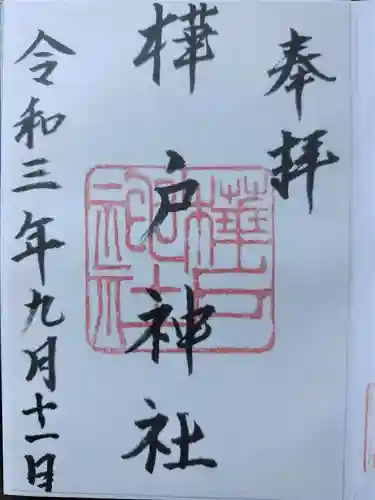 奉拝
樺戸神社
令和三年九月十一日
樺戸
神社